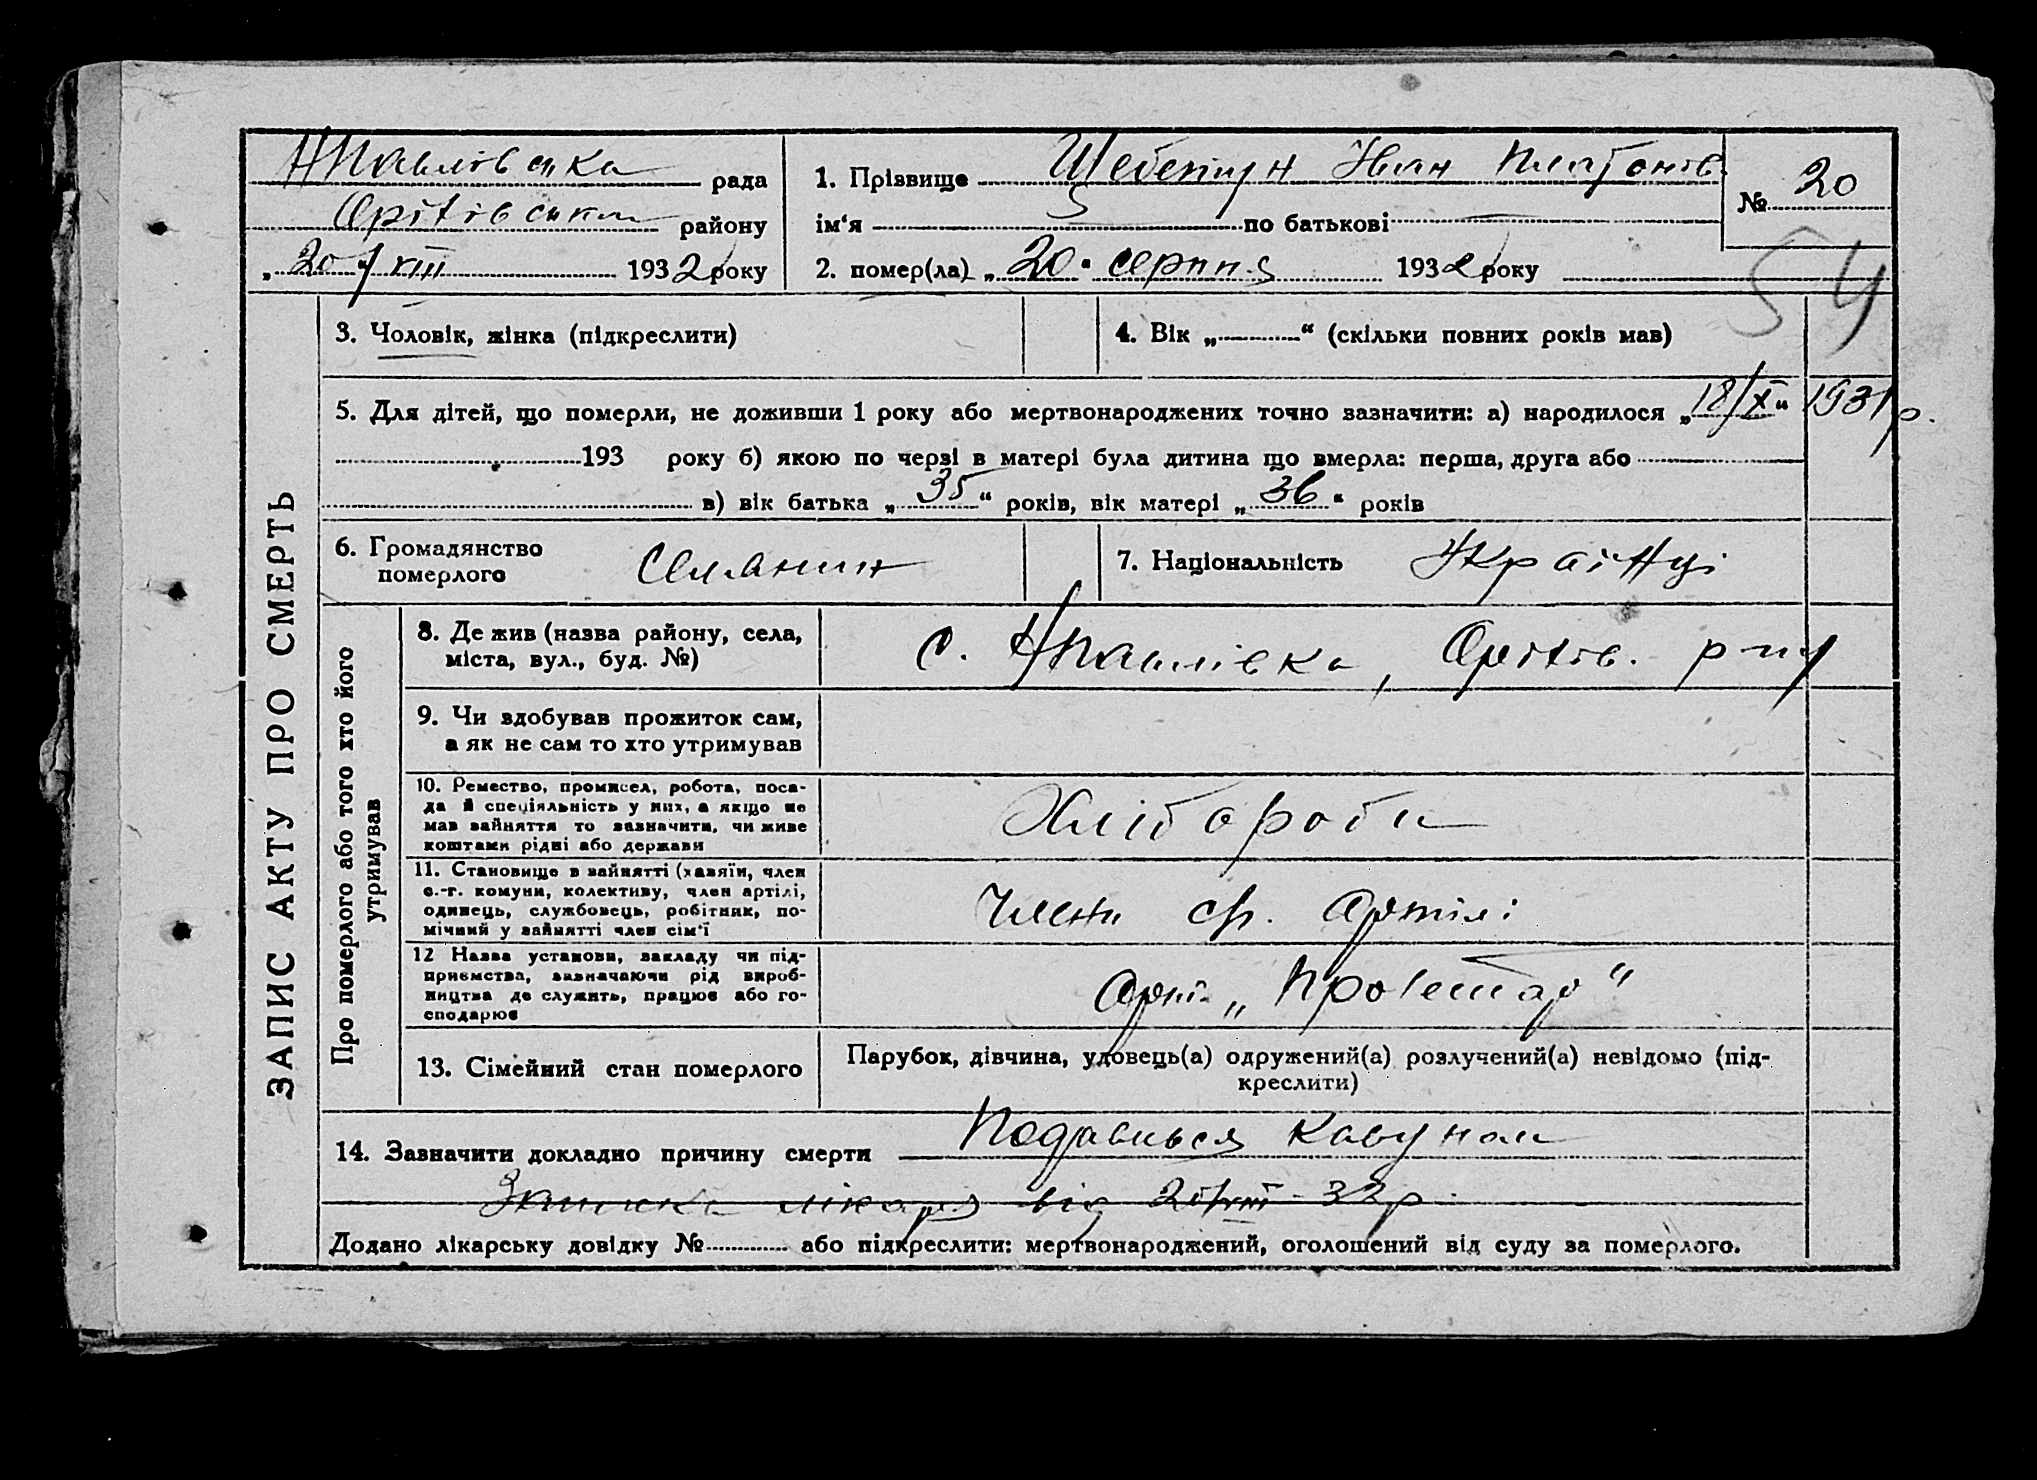 Нпавлівська рада
Оріхівськ району
„20“/VIII 1932 року
1. Прізвище Шебепіун Іван Платонів.
ім‘я по батькові
2. помер(ла) „20“ серпня 1932 року
№ 20
54
ЗАПИС АКТУ ПРО СМЕРТЬ
3. Чоловік, жінка (підкреслити)
4. Вік „ “ (скільки повних років мав)
5. Для дітей, що померли, не доживши 1 року або мертвонароджених точно зазначити: а) народилося „18/X“ 1931 р.
193 року б) якою по черзі в матері була дитина що вмерла: перша, друга або
в) вік батька „35“ років, вік матері „36“ років
6. Громадянство
померлого
Селянин
7. Національність Українці
Про померлого або того хто його
утримував
8. Де жив (назва району, села,
міста, вул., буд. №)
с. Нпавлівка, Оріхів. р-ну
9. Чи здобував прожиток сам,
а як не сам то хто утримував
10. Ремество, промисел, робота, поса-
да й спеціяльність у них, а якщо не
мав зайняття то зазначити, чи живе
коштами рідні або держави
Хлібороби
11. Становище в зайнятті (хазяїн, член
с.-г. комуни, колективу, член артілі,
одинець, службовець, робітник, по-
мічний у зайнятті член сім‘ї
Члени ср. артілі
12 Назва установи, закладу чи під-
приємства, зазначаючи рід вироб-
ництва де служить, працює або го-
сподарює
Арті. „Пролетар“
13. Сімейний стан померлого
Парубок, дівчина, удовець(а) одружений(а) розлучений(а) невідомо (під-
креслити)
14. Зазначити докладно причину смерти Подавився кавуном
Записка лікаря від 20/VIII-32р.
Додано лікарську довідку № або підкреслити: мертвонароджений, оголошений від суду за померлого.